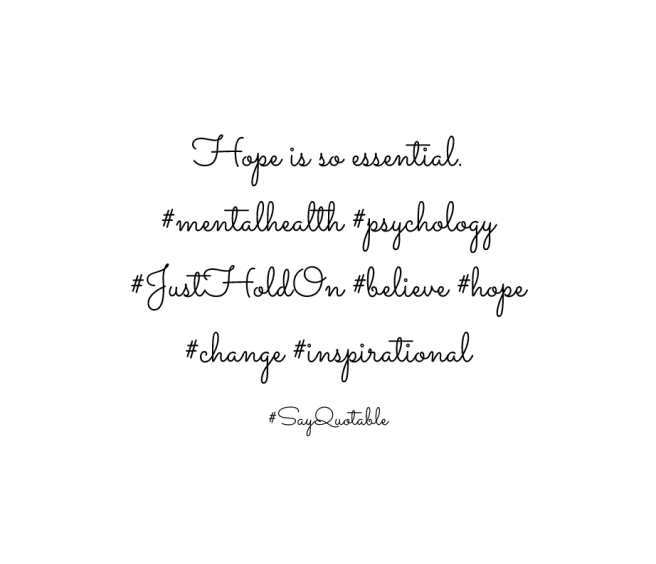 Hope is so essential.
#mentalhealth #psychology
#JustHoldOn #believe #hope
#change #inspirational
#SayQuotable